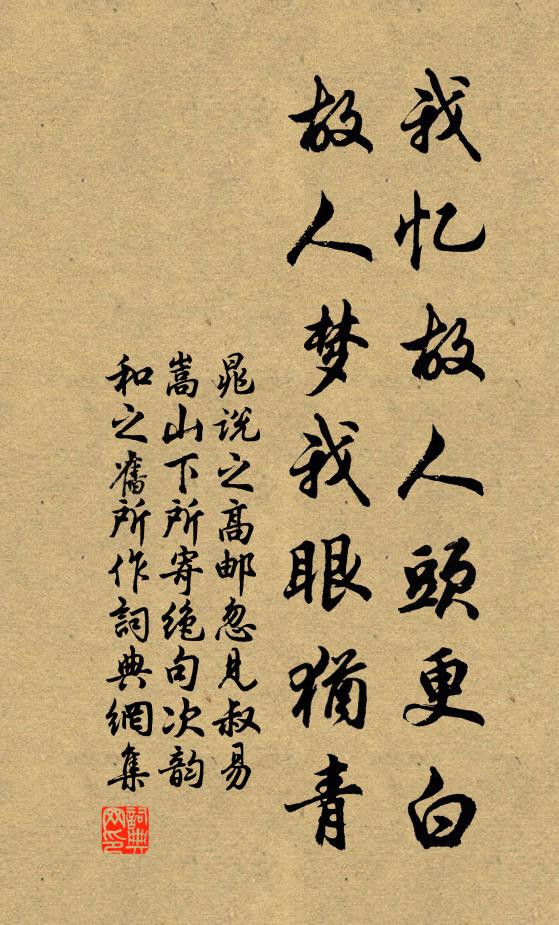 我忆故人頭更白
故人梦我眼猶青
晁说之高邮忽見叔易
嵩山下所寄绝句次韵
和之舊所作詞典網集
詞典
网印